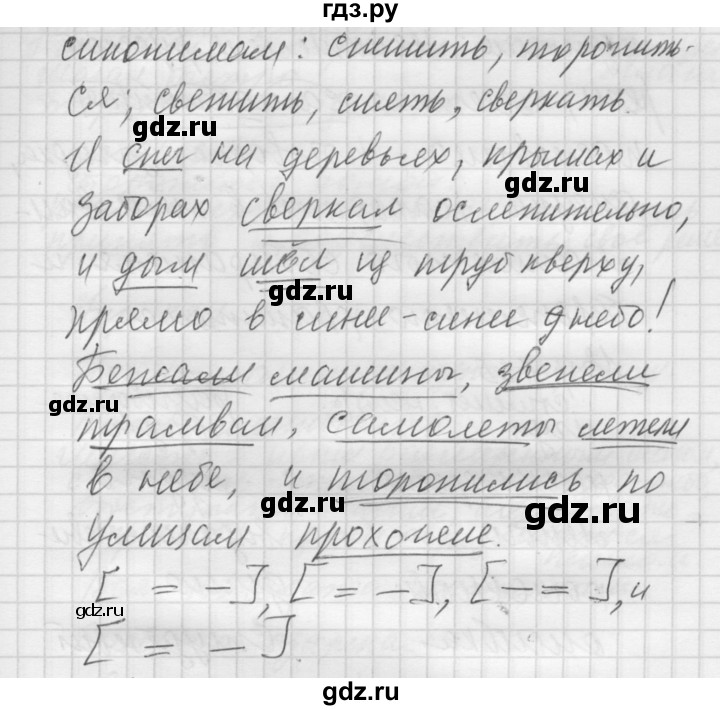 гдз.ру
синонимам: спешить, торопить-
ся; светить, сиять, сверкать.
gdz.ru
И снег на деревьях, крышах и
gdz.ru
заборах сверкал ослепительно,
и дым шёл из труб кверху,
gdz.ru
прямо в сине-синее небо!
Бежали машины, звенели
gdz.ru
трамваи, самолеты летели
в небе, и торопились по
gdz.ru
gdz.ru
улицам прохожие.
[ = – ], [ = – ], [ – = ], и
gdz.ru
[ = – ].
gdz.ru